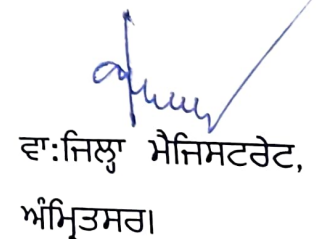 ਵਾ:ਜਿਲ੍ਹਾ ਮੈਜਿਸਟਰੇਟ,
ਅੰਮ੍ਰਿਤਸਰ।